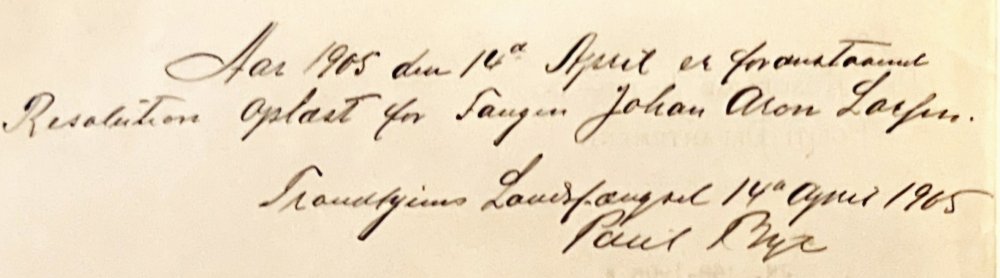 Aar 1905 den 14de April er foranstaaende
Resolution oplæst for Fangen Johan Aron Larsen.
Trondhjems Landsfængsel 14de April 1905
Paul Bye